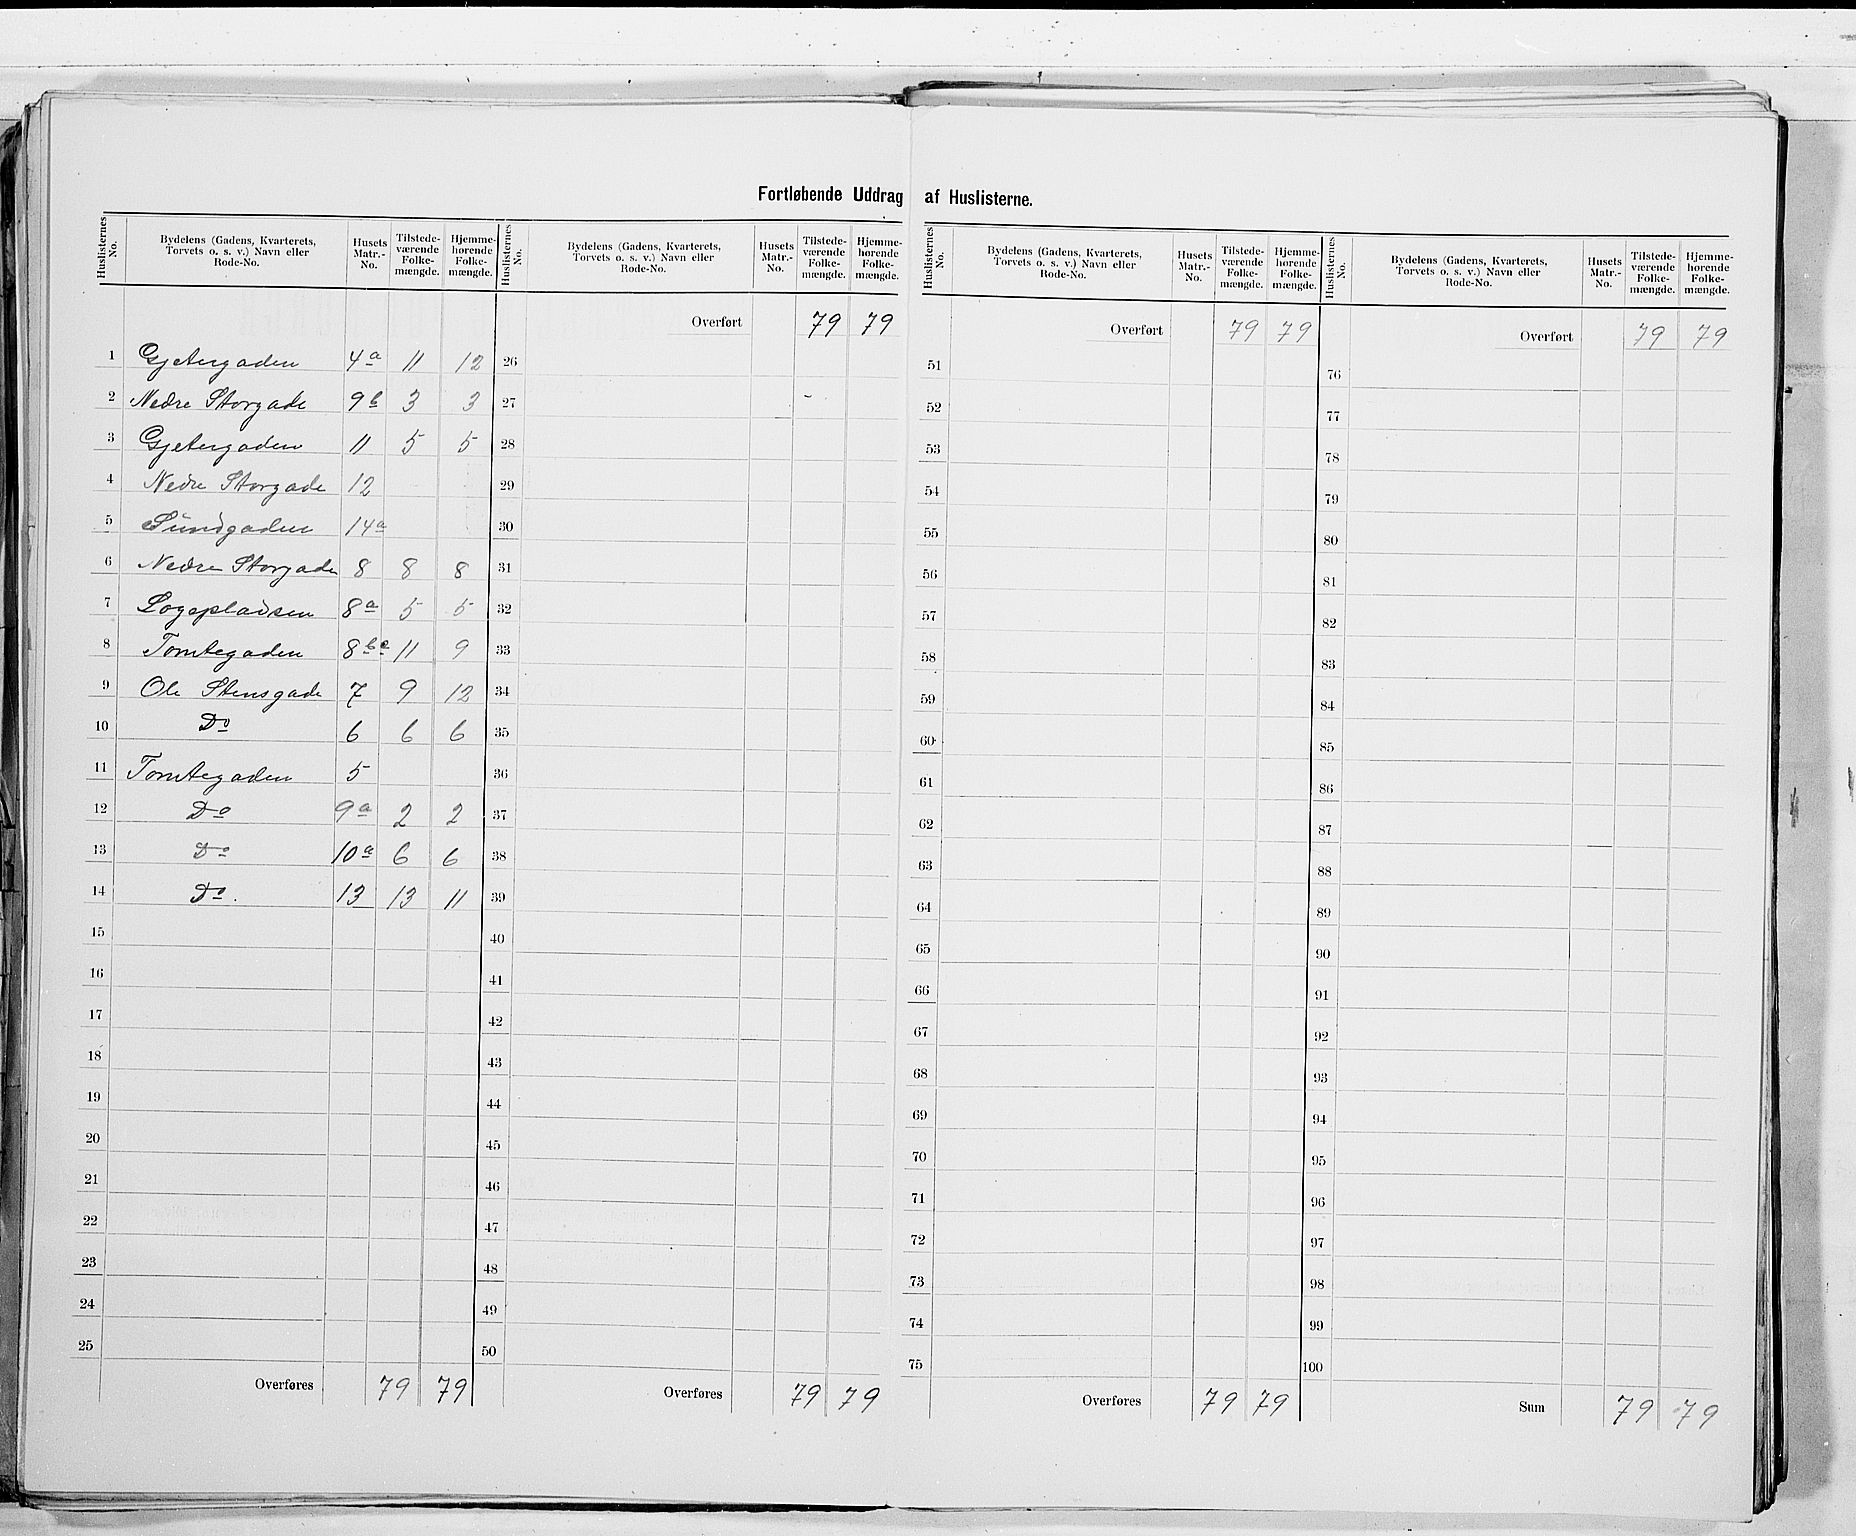 Fortløbende Uddrag af Huslisterne.
Huslisternes No. | Bydelens (Gadens, Kvarterets, Torvets o. s. v.) Navn eller Rode-No. | Husets Matr.-No. | Tilstedeværende Folkemængde. | Hjemmehørende Folkemængde.
1 Gjetergaden 4a 11 12
2 Nedre Storgade 9b 3 3
3 Gjetergaden 11 5 5
4 Nedre Storgade 12
5 Sundgaden 14a
6 Nedre Storgade 8 8 8
7 Logepladsen 8a 5 5
8 Tomtegaden 8b 11 9
9 Ole Stensgade 7 9 12
10 Do 6 6 6
11 Tomtegaden 5
12 Do 9a 2 2
13 Do 10a 6 6
14 Do. 13 13 11
15
16
17
18
19
20
21
22
23
24
25
Overføres 79 79
Huslisternes No. | Bydelens (Gadens, Kvarterets, Torvets o. s. v.) Navn eller Rode-No. | Husets Matr.-No. | Tilstedeværende Folkemængde. | Hjemmehørende Folkemængde.
Overført 79 79
26
27
28
29
30
31
32
33
34
35
36
37
38
39
40
41
42
43
44
45
46
47
48
49
50
Overføres 79 79
Huslisternes No. | Bydelens (Gadens, Kvarterets, Torvets o. s. v.) Navn eller Rode-No. | Husets Matr.-No. | Tilstedeværende Folkemængde. | Hjemmehørende Folkemængde.
Overført 79 79
51
52
53
54
55
56
57
58
59
60
61
62
63
64
65
66
67
68
69
70
71
72
73
74
75
Overføres 79 79
Huslisternes No. | Bydelens (Gadens, Kvarterets, Torvets o. s. v.) Navn eller Rode-No. | Husets Matr.-No. | Tilstedeværende Folkemængde. | Hjemmehørende Folkemængde.
Overført 79 79
76
77
78
79
80
81
82
83
84
85
86
87
88
89
90
91
92
93
94
95
96
97
98
99
100
Sum 79 79